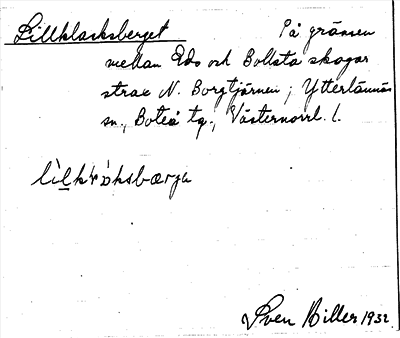 Lillklacksberget På gränsen
mellan Eds och Bollsta skogar
strax N. Borgtjärnen; Ytterlännäs
sn., Boteå tg., Västernorrl. l.
Sven Hiller 1932